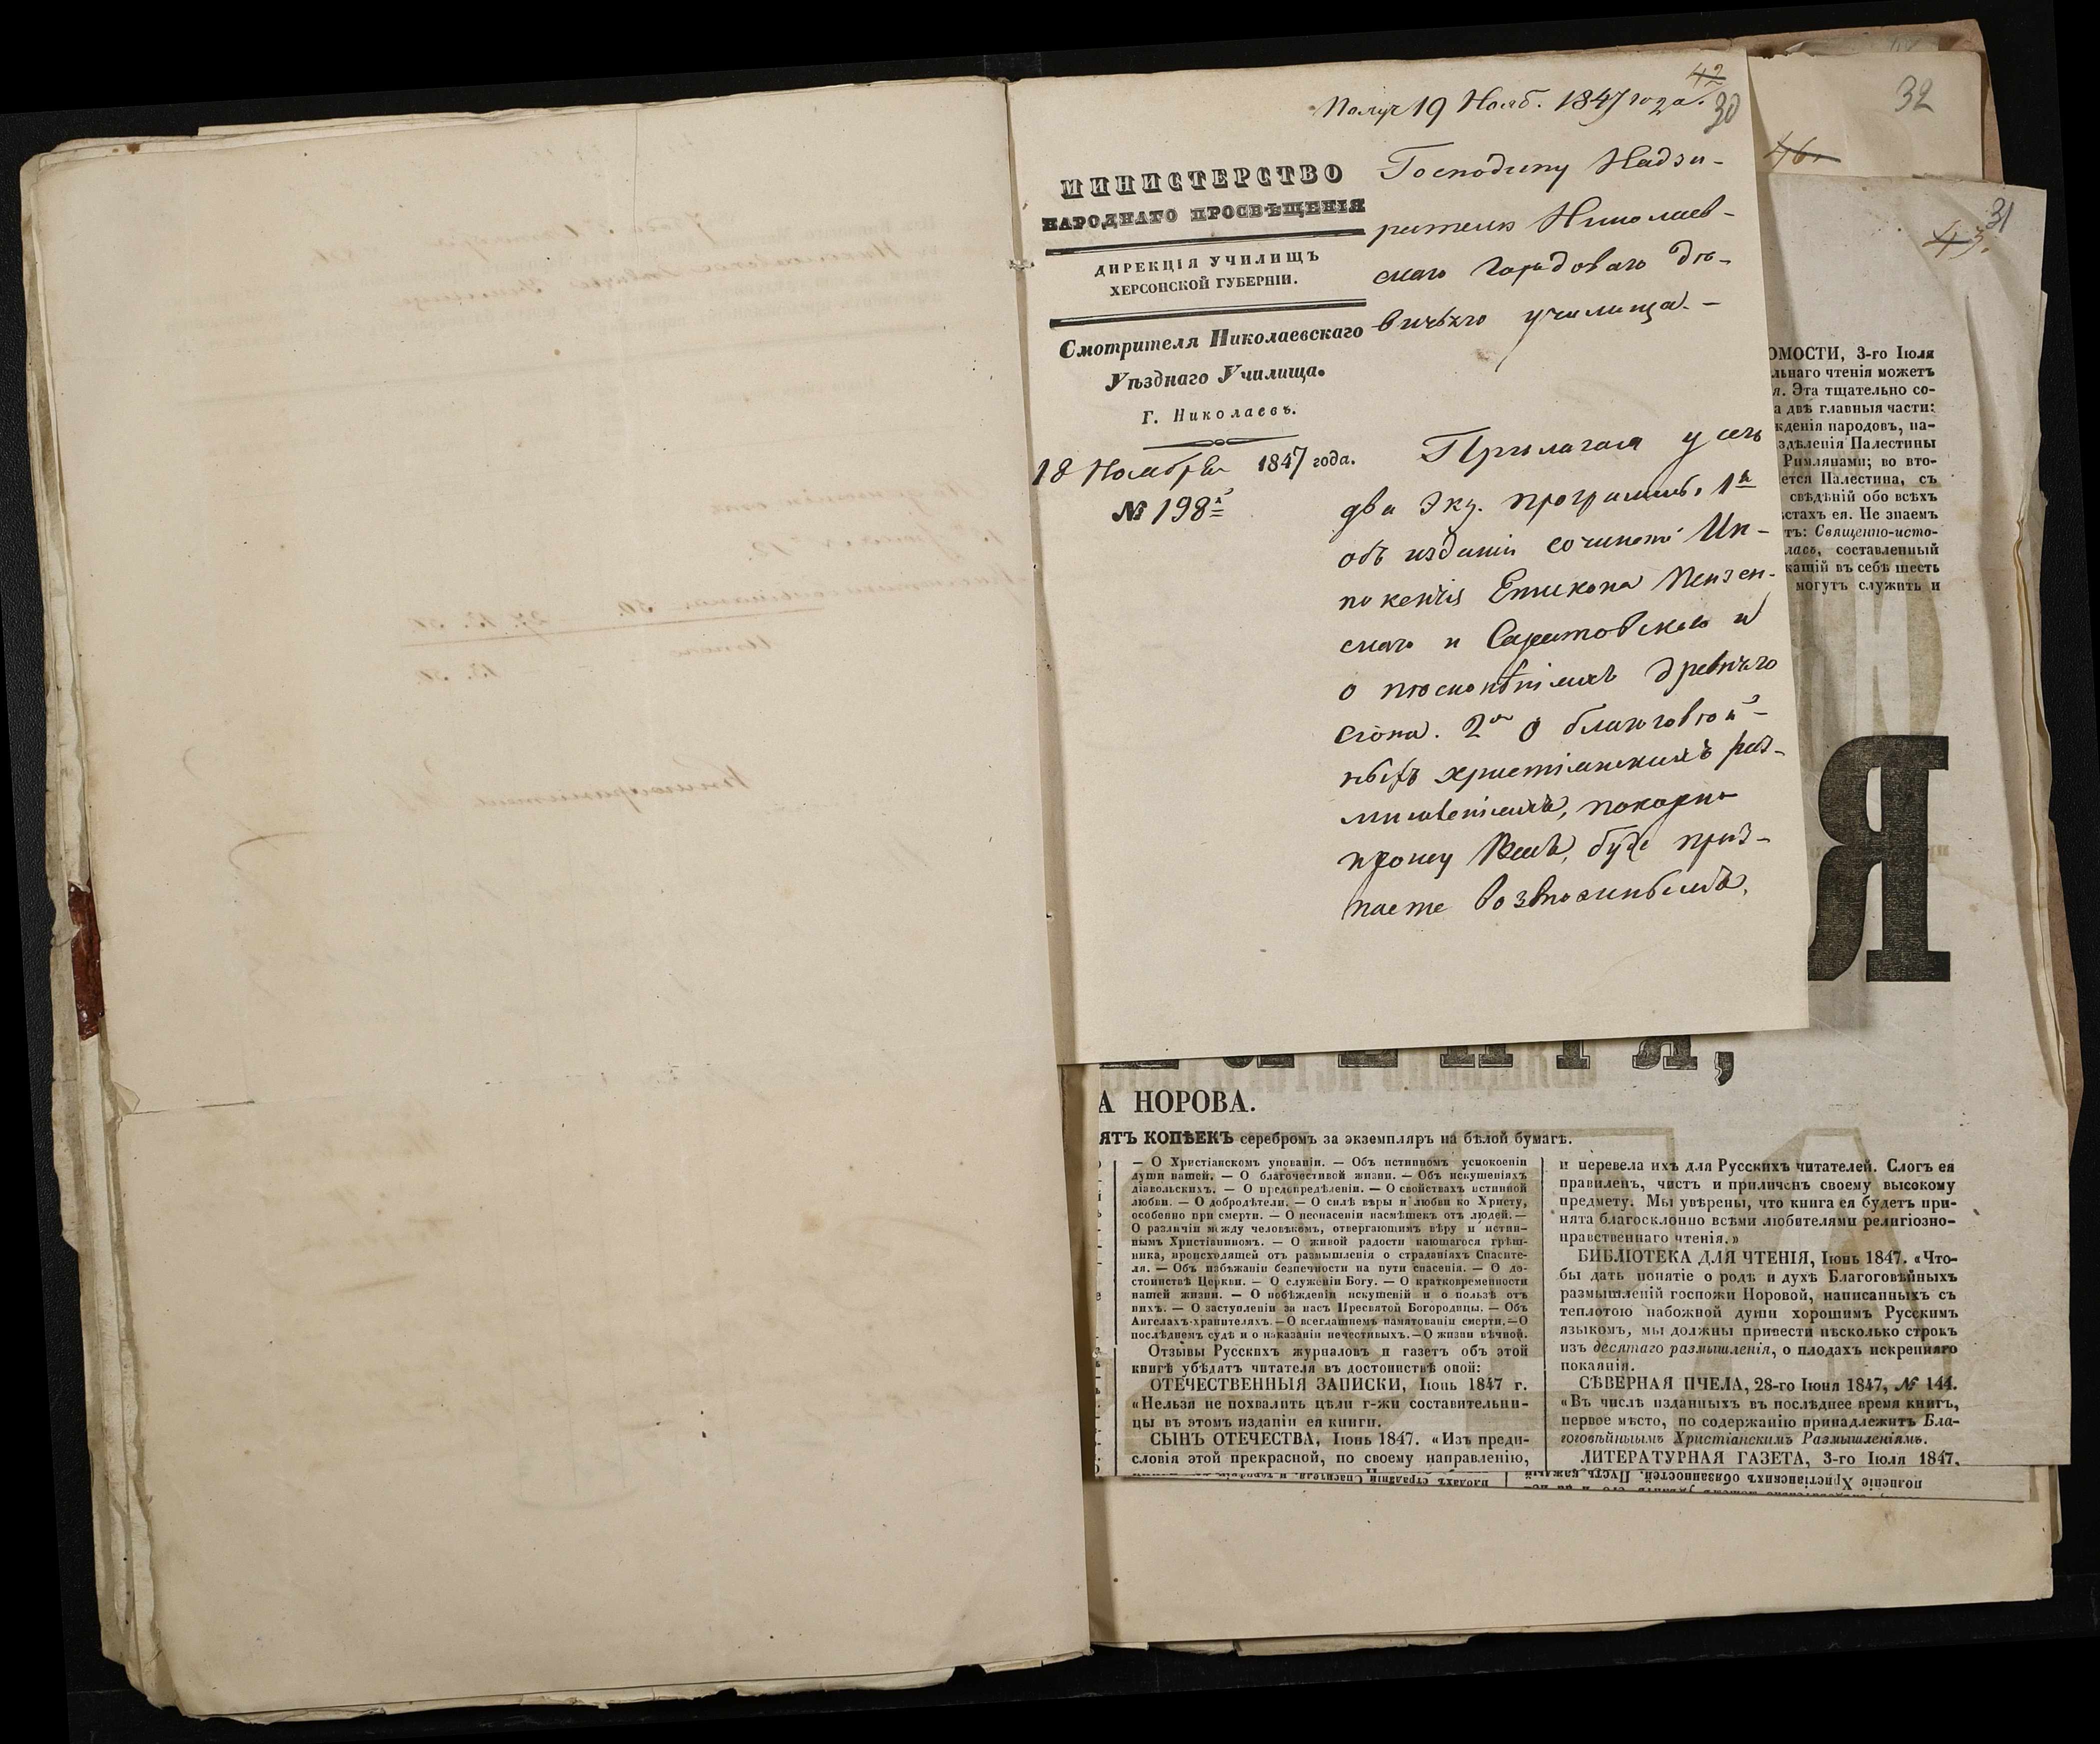 42
Получ 19 Нояб. 1847 года.
30
МИНИСТЕРСТВО
НАРОДНАГО ПРОСВѢЩЕНІЯ
ДИРЕКЦІЯ УЧИЛИЩЪ
ХЕРСОНСКОЙ ГУБЕРНІИ.
Смотрителя Николаевскаго
Уѣзднаго Училища.
Г. Николаевъ.
18 Ноября 1847 года.
№ 198
Господину Надзи-
рателю Николаев-
скаго Городоваго дѣ-
вичьяго училища. —
Прилагая у сего
два экз. программъ, 1й
объ изданіи сочиненій Ин-
нокентія Епископа Пензен-
скаго и Саратовскаго и
о пѣснопѣніяхъ древняго
Сіона. 2й О благоговѣй-
ныхъ христіанскихъ раз-
мышленіяхъ, покорно
прошу Васъ, буде приз-
наете возможнымъ,
32
46.
31
43.
ОМОСТИ, 3-го Іюля
льнаго чтенія можетъ
я. Эта тщательно со-
а двѣ главныя части:
жденія народовъ, на-
здѣленія Палестины
Римлянами; во вто-
ется Палестина, съ
свѣдѣній обо всѣхъ
стахъ ея. Не знаемъ
тъ: Священно-исто-
ласъ, составленный
жащій въ себѣ шесть
могутъ служить и
Я
А НОРОВА.
ЯТЬ КОПѢЕКЪ серебромъ за экземпляръ на бѣлой бумагѣ.
— О Христіанскомъ упованіи. — Объ истинномъ успокоеніи
души нашей. — О благочестивой жизни. — Объ искушеніяхъ
діавольскихъ. — О предопредѣленіи. — О свойствахъ истинной
любви. — О добродѣтели. — О силѣ вѣры и любви ко Христу,
особенно при смерти. — О неопасеніи насмѣшекъ отъ людей. —
О различіи между человѣкомъ, отвергающимъ вѣру и истин-
нымъ Христіаниномъ. — О живой радости кающагося грѣш-
ника, происходящей отъ размышленія о страданіяхъ Спасите-
ля. — Объ избѣжаніи безпечности на пути спасенія. — О до-
стоинствѣ Церкви. — О служеніи Богу. — О кратковременности
нашей жизни. — О побѣжденіи искушеній и о пользѣ отъ
нихъ. — О заступленіи за насъ Пресвятой Богородицы. — Объ
Ангелахъ-хранителяхъ. — О всегдашнемъ памятованіи смерти. — О
послѣднемъ судѣ и о наказаніи нечестивыхъ. — О жизни вѣчной.
Отзывы Русскихъ журналовъ и газетъ объ этой
книгѣ убѣдятъ читателя въ достоинствѣ оной:
ОТЕЧЕСТВЕННЫЯ ЗАПИСКИ, Іюнь 1847 г.
«Нельзя не похвалить цѣли г-жи составительни-
цы въ этомъ изданіи ея книги.
СЫНЪ ОТЕЧЕСТВА, Іюнь 1847. «Изъ преди-
словія этой прекрасной, по своему направленію,
и перевела ихъ для Русскихъ читателей. Слогъ ея
правиленъ, чистъ и приличенъ своему высокому
предмету. Мы увѣрены, что книга ея будетъ при-
нята благосклонно всѣми любителями религіозно-
нравственнаго чтенія.»
БИБЛІОТЕКА ДЛЯ ЧТЕНІЯ, Іюнь 1847. «Что-
бы дать понятіе о родѣ и духѣ Благоговѣйныхъ
размышленій госпожи Норовой, написанныхъ съ
теплотою набожной души хорошимъ Русскимъ
языкомъ, мы должны привести нѣсколько строкъ
изъ десятаго размышленія, о плодахъ искренняго
покаянія.
СѢВЕРНАЯ ПЧЕЛА, 28-го Іюня 1847, № 144.
«Въ числѣ изданныхъ въ послѣднее время книгъ,
первое мѣсто, по содержанію принадлежитъ Бла-
гоговѣйнымъ Христіанскимъ Размышленіямъ.
ЛИТЕРАТУРНАЯ ГАЗЕТА, 3-го Іюля 1847.